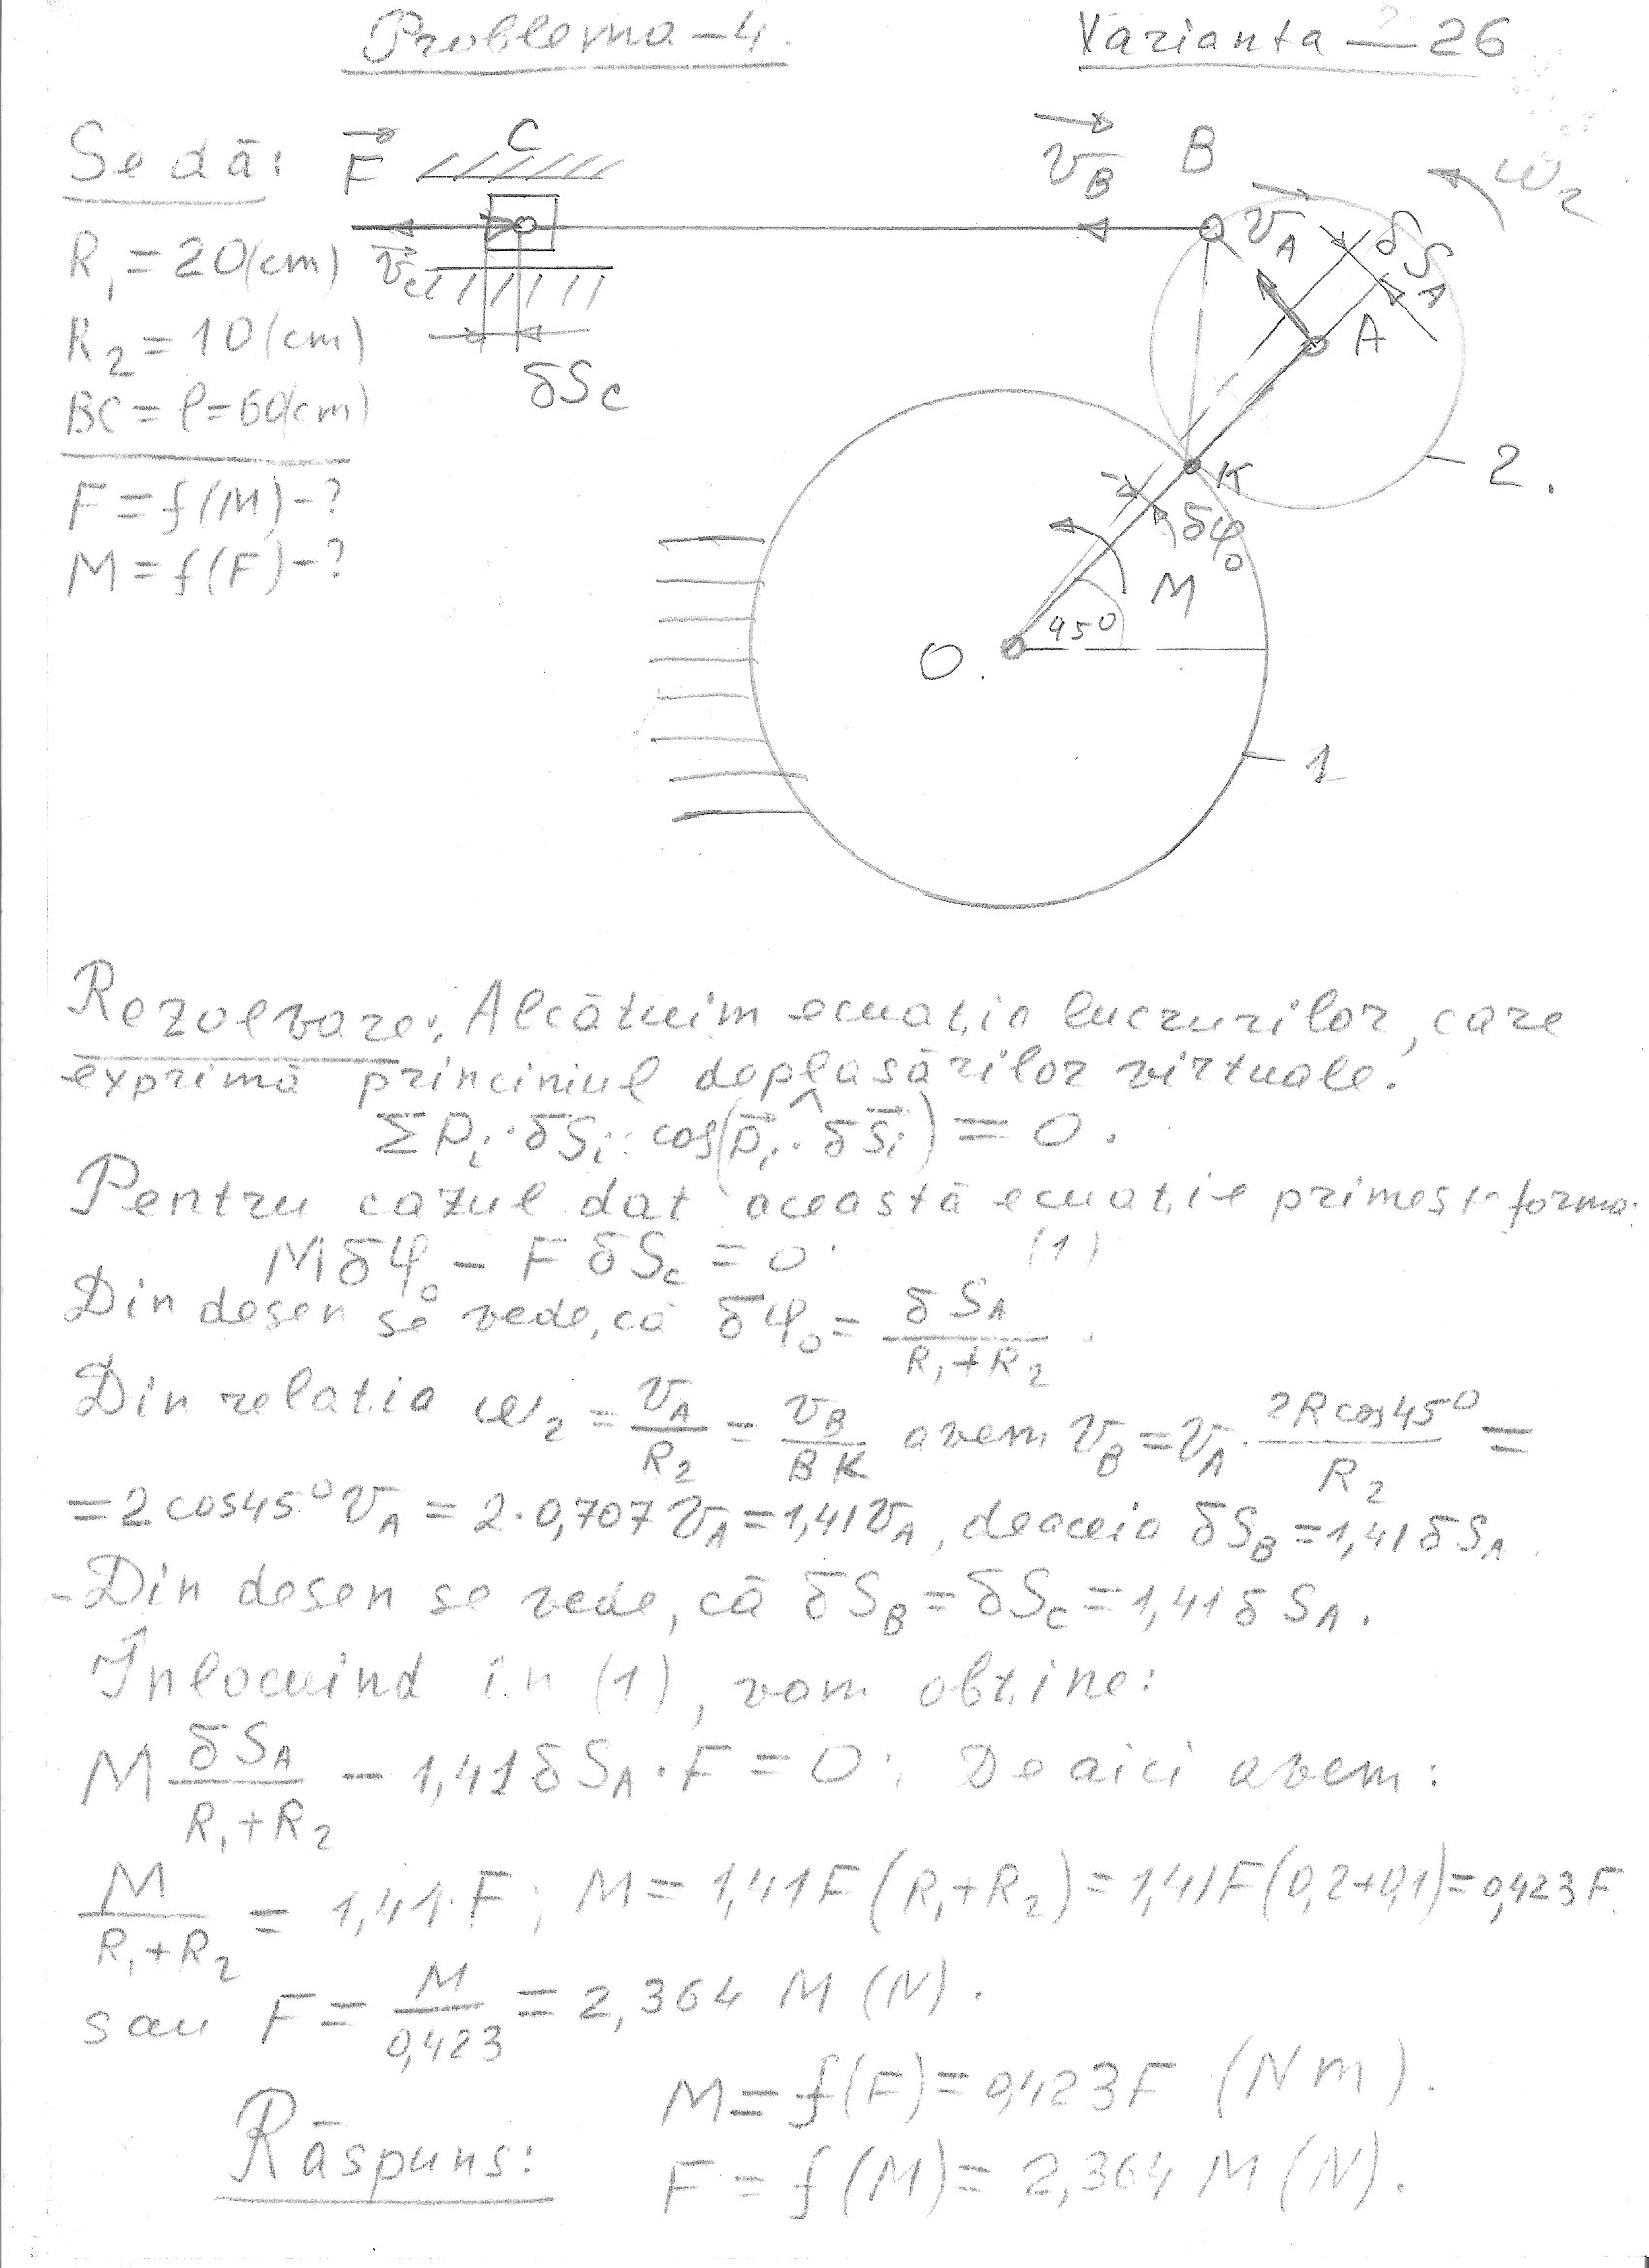 Problema - 4.
Varianta - 26
Se dă:
R₁ = 20(cm)
R₂ = 10(cm)
BC = l = 60(cm)
F = f(M) - ?
M = f(F) - ?
F
C
v_B
B
ω₂
v_c
v_A
δS_A
δS_c
A
K
2.
δφ₀
M
45⁰
O.
1
Rezolvare: Alcătuim ecuația lucrurilor, care
exprimă princiniul deplasărilor virtuale.
Σ P_i · δS_i · cos(P_i ^ · δS_i) = 0.
Pentru cazul dat această ecuație primește forma:
M δφ₀ - F δS_c = 0 (1)
Din desen se vede, că δφ₀ = δS_A / (R₁ + R₂).
Din relația ω₂ = v_A / R₂ = v_B / BK avem v_B = v_A · 2R cos45⁰ / R₂ =
= 2 cos45⁰ v_A = 2 · 0,707 v_A = 1,41 v_A, deaceia δS_B = 1,41 δS_A.
- Din desen se vede, că δS_B = δS_c = 1,41 δS_A.
Înlocuind în (1), vom obține:
M δS_A / (R₁ + R₂) - 1,41 δS_A · F = 0; De aici avem:
M / (R₁ + R₂) = 1,41 · F; M = 1,41 F (R₁ + R₂) = 1,41 F (0,2 + 0,1) = 0,423 F.
sau F = M / 0,423 = 2,364 M (N).
Răspuns: M = f(F) = 0,423 F (Nm).
F = f(M) = 2,364 M (N).